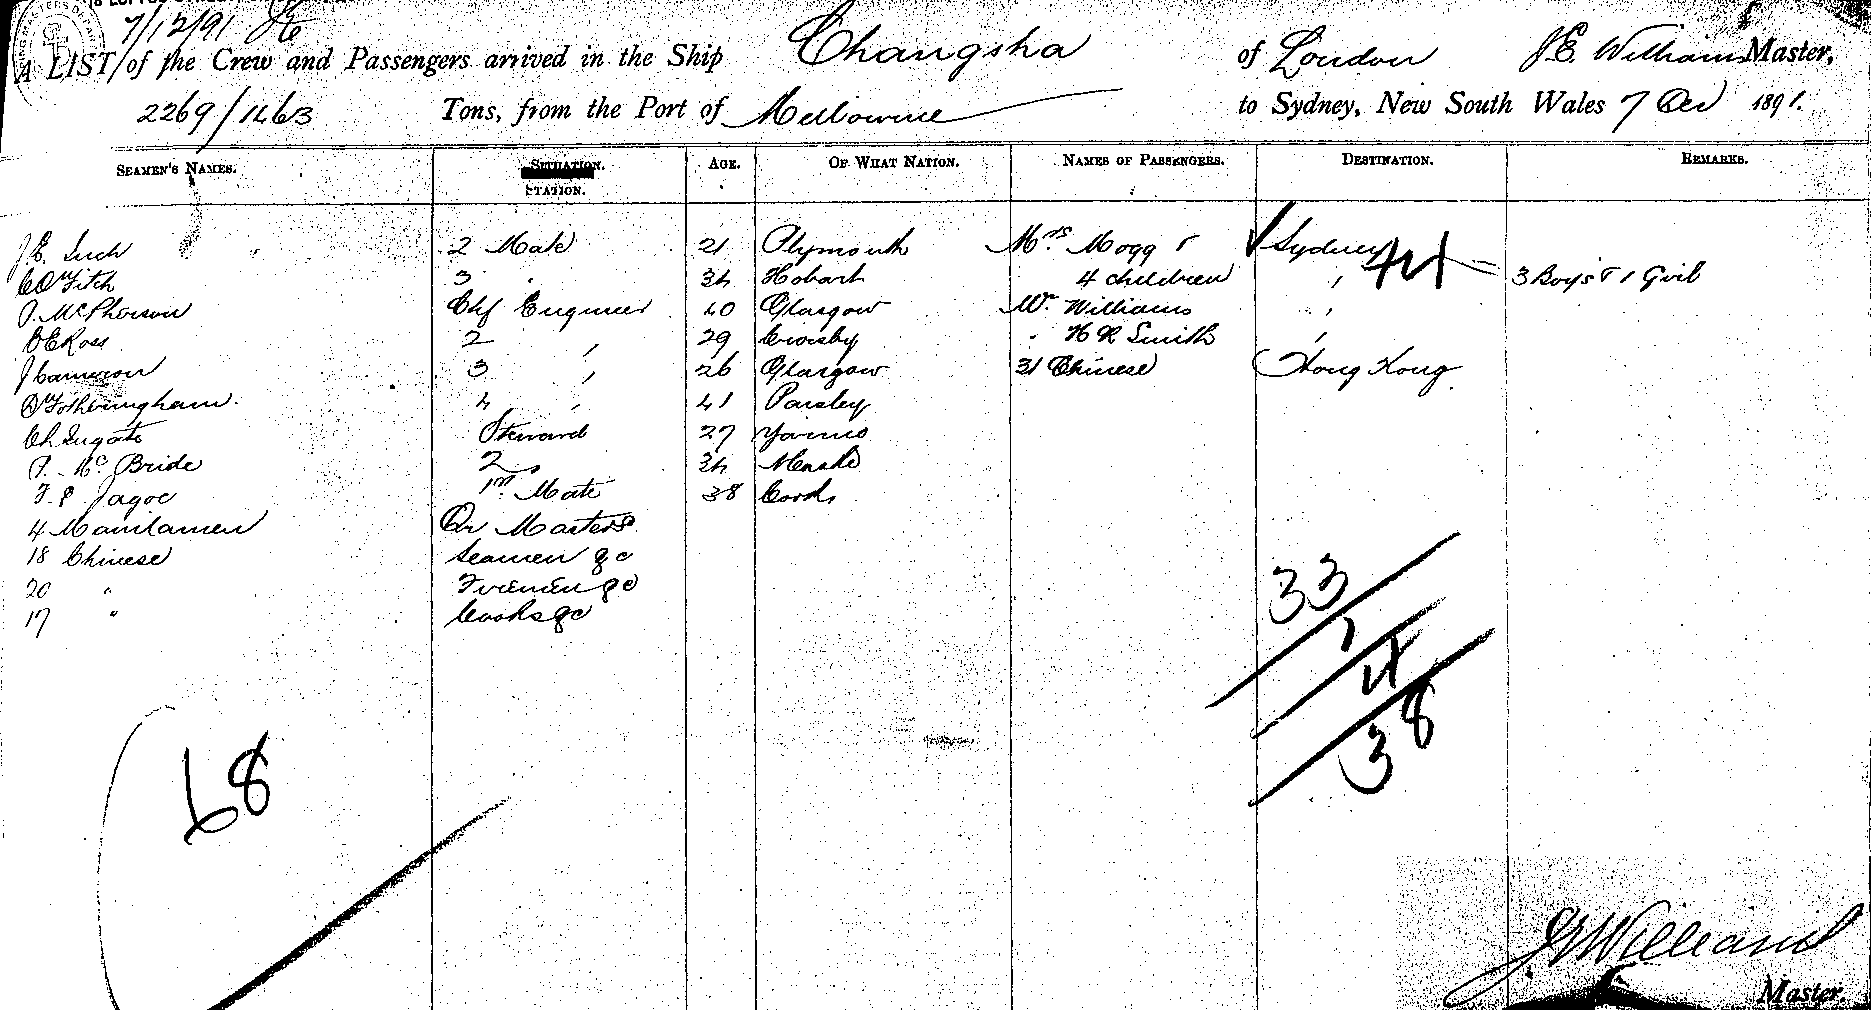 7/12/91
A LIST of the Crew and Passengers arrived in the Ship Changsha of London J.E. Williams Master,
2269/1463 Tons, from the Port of Melbourne to Sydney, New South Wales 7 Dec 1891.
SEAMEN'S NAMES. SITUATION. AGE. OF WHAT NATION. NAMES OF PASSENGERS. DESTINATION. REMARKS.
STATION.
J.E. Such 2 Mate 21 Plymouth Mrs Mogg & Sydney
Fitch 3 " 34 Hobart 4 children " 3 Boys & 1 Girl
McPherson Chf Engineer 40 Glasgow Mr Williams "
Ross 2 " 29 Crosby " H R Smith "
J Cameron 3 " 26 Glasgow 31 Chinese Hong Kong
D Fotheringham 4 " 41 Paisley
Ch. Steward 27
Mc Bride 2 " 34
Jagoe 1st Mate 38
4 Manilamen Qr Masters
18 Chinese Seamen &c
20 " Firemen &c
17 " Cooks &c
33
1
4
38
68
Williams
Master.